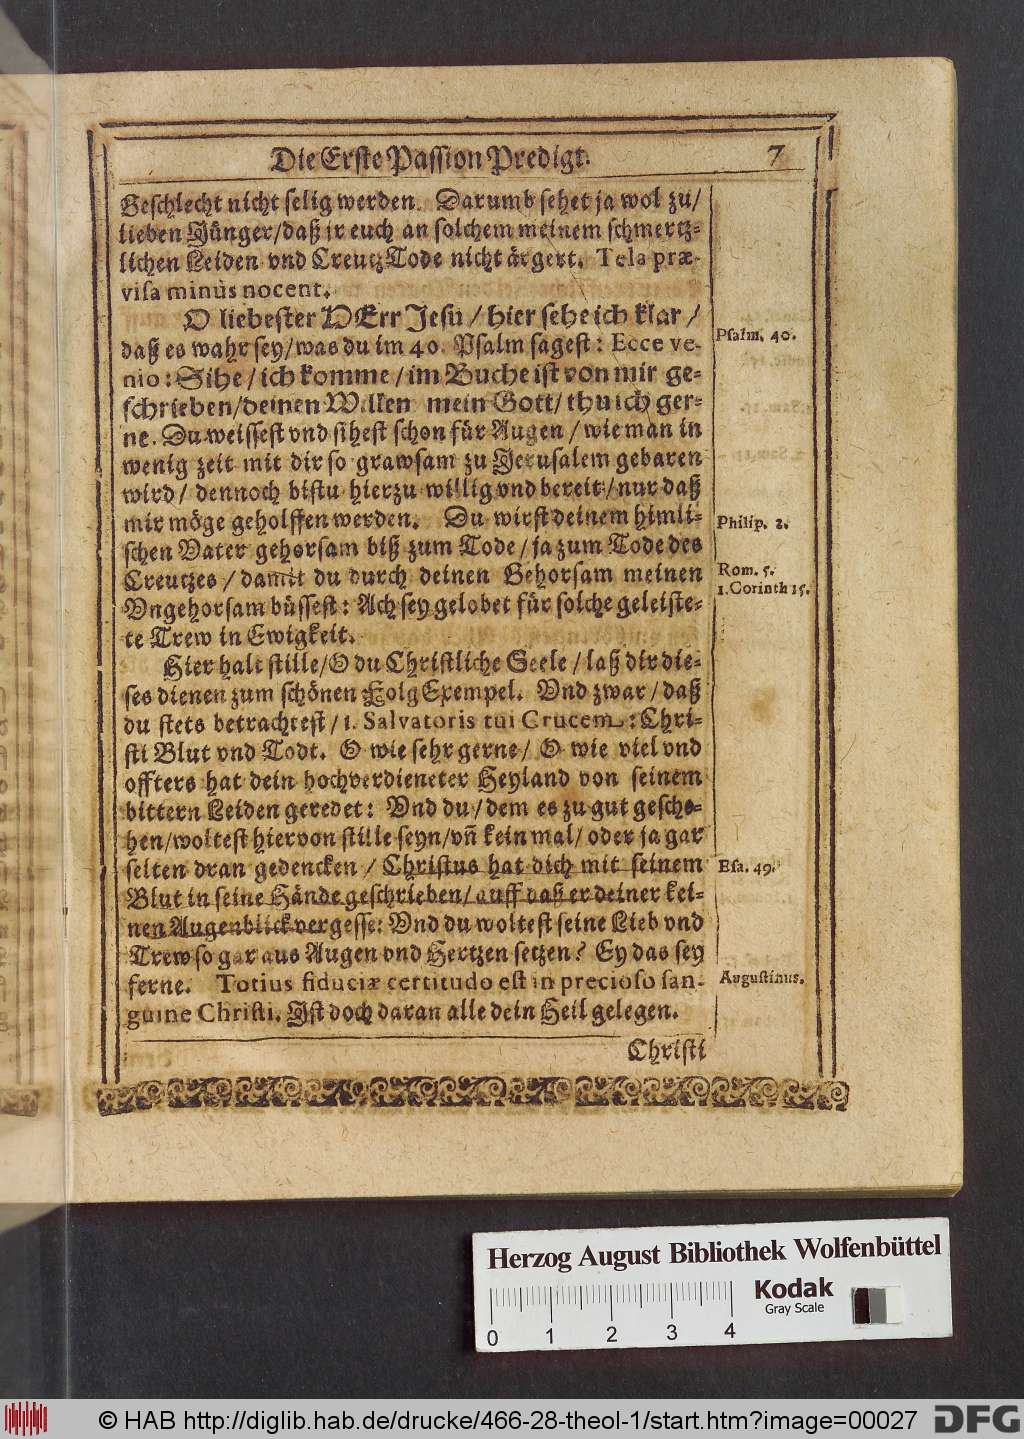 Die Erste Passion Predigt. 7
Geschlecht nicht selig werden. Darumb sehet ja wol zu/
lieben Jünger/daß jr euch an solchem meinem schmertz-
lichen Leiden vnd CreutzTode nicht ärgert. Tela præ-
visa minùs nocent.
O liebester HErr Jesu / hier sehe ich klar /
daß es wahr sey/was du im 40. Psalm sagest: Ecce ve-
nio: Sihe / ich komme / im Buche ist von mir ge-
schrieben/deinen Willen mein Gott/ thu ich ger-
ne. Du weissest vnd sihest schon für Augen / wie man in
wenig zeit mit dir so grawsam zu Jerusalem gebaren
wird/ dennoch bistu hierzu willig vnd bereit/ nur daß
mir möge geholffen werden. Du wirst deinem himli-
schen Vater gehorsam biß zum Tode / ja zum Tode des
Creutzes / damit du durch deinen Gehorsam meinen
Vngehorsam büssest: Ach sey gelobet für solche geleiste-
te Trew in Ewigkeit.
Hier halt stille/O du Christliche Seele / laß dir die-
ses dienen zum schönen FolgExempel. Vnd zwar / daß
du stets betrachtest / 1. Salvatoris tui Crucem: Chri-
sti Blut vnd Todt. O wie sehr gerne/ O wie viel vnd
offters hat dein hochverdieneter Heyland von seinem
bittern Leiden geredet: Vnd du / dem es zu gut gesche-
hen/woltest hiervon stille seyn/vñ kein mal/ oder ja gar
selten dran gedencken / Christus hat dich mit seinem
Blut in seine Hände geschrieben/ auff daß er deiner kei-
nen Augenblick vergesse: Vnd du woltest seine Lieb vnd
Trew so gar aus Augen vnd Hertzen setzen? Ey das sey
ferne. Totius fiduciæ certitudo est in precioso san-
guine Christi. Ist doch daran alle dein Heil gelegen.
Christi
Psalm. 40.
Philip. 2.
Rom. 5.
1. Corinth 15.
Esa. 49.
Augustinus.
Herzog August Bibliothek Wolfenbüttel
Kodak
Gray Scale
0 1 2 3 4
© HAB http://diglib.hab.de/drucke/466-28-theol-1/start.htm?image=00027
DFG